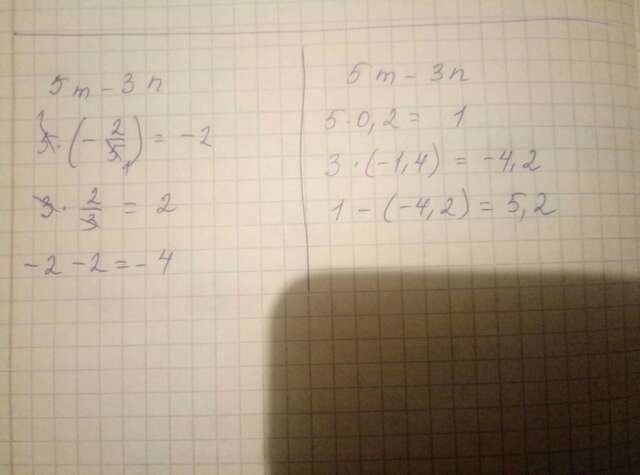 5m - 3n
5 · (- 2/5) = -2
3 · 2/3 = 2
-2 - 2 = -4
5m - 3n
5 · 0,2 = 1
3 · (-1,4) = -4,2
1 - (-4,2) = 5,2